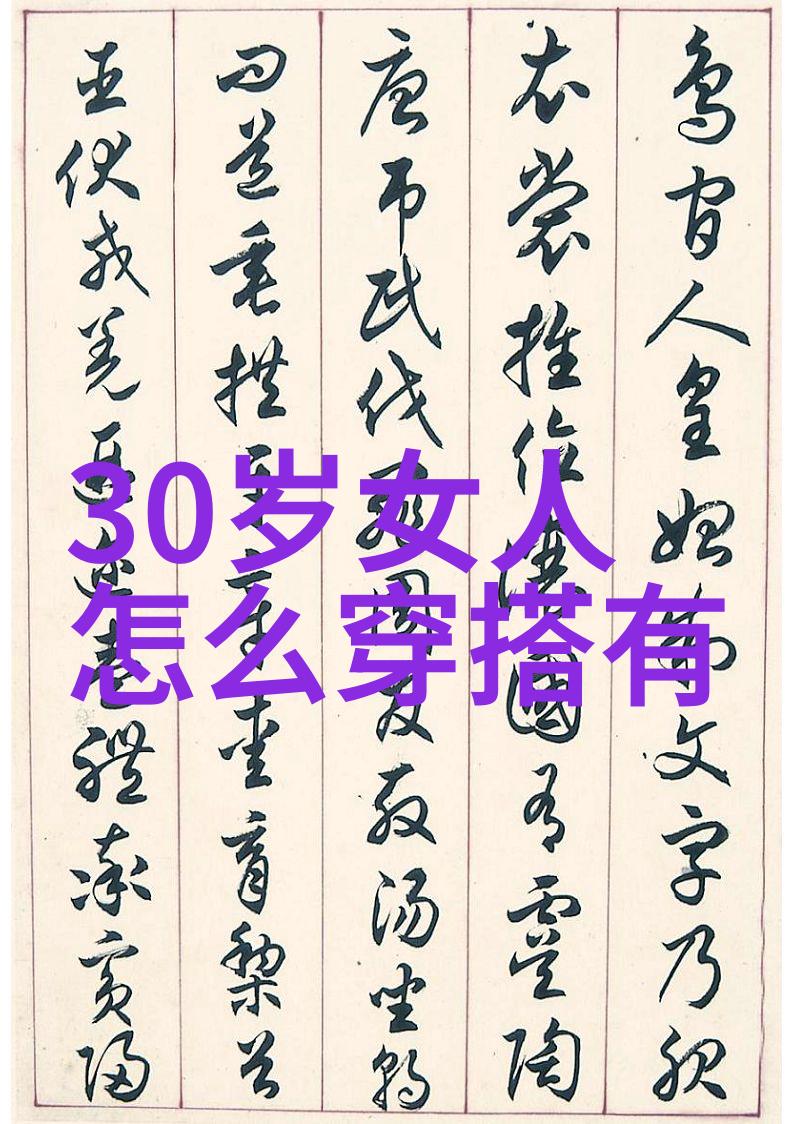 鳥官人皇始制文字乃服
衣裳推位讓國有虞陶
唐吊民伐罪周發殷湯坐朝
問道垂拱平章愛育黎首
臣伏戎羌遐迩壹體率賓歸
30岁女人
怎么穿搭有